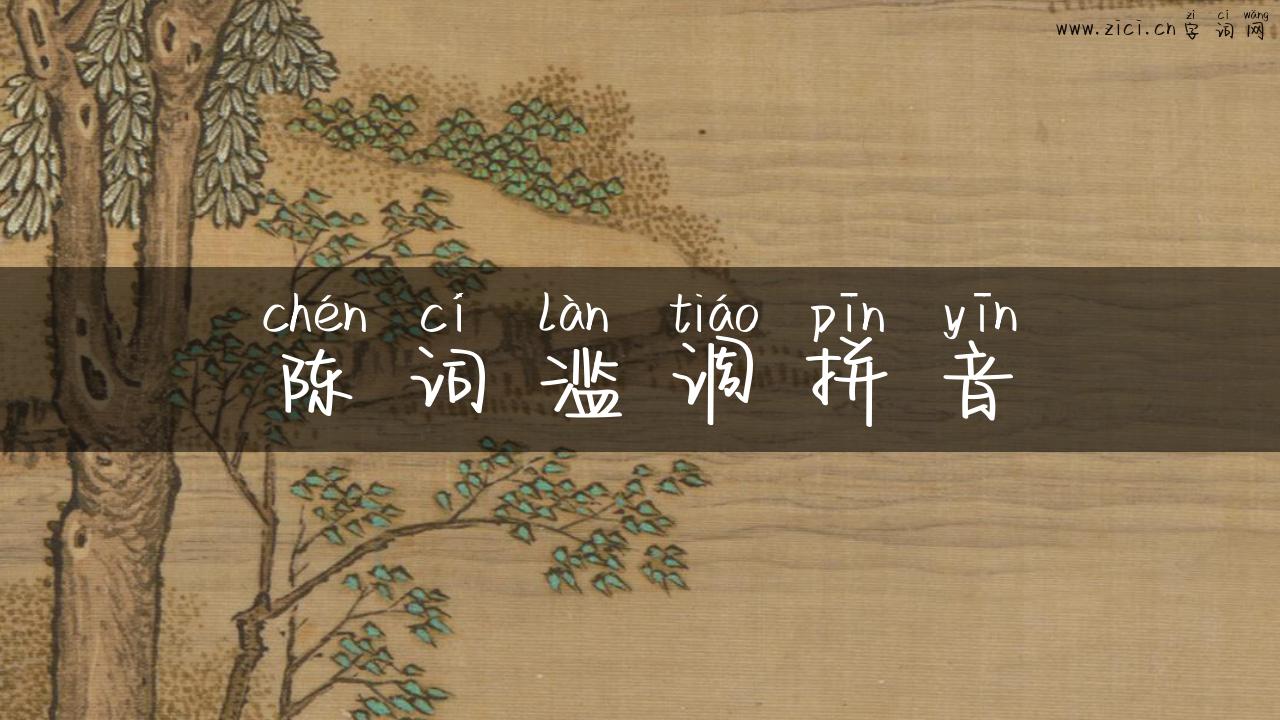 zì cí wǎng
www.zici.cn 字 词 网
chén cí làn tiáo pīn yīn
陈 词 滥 调 拼 音